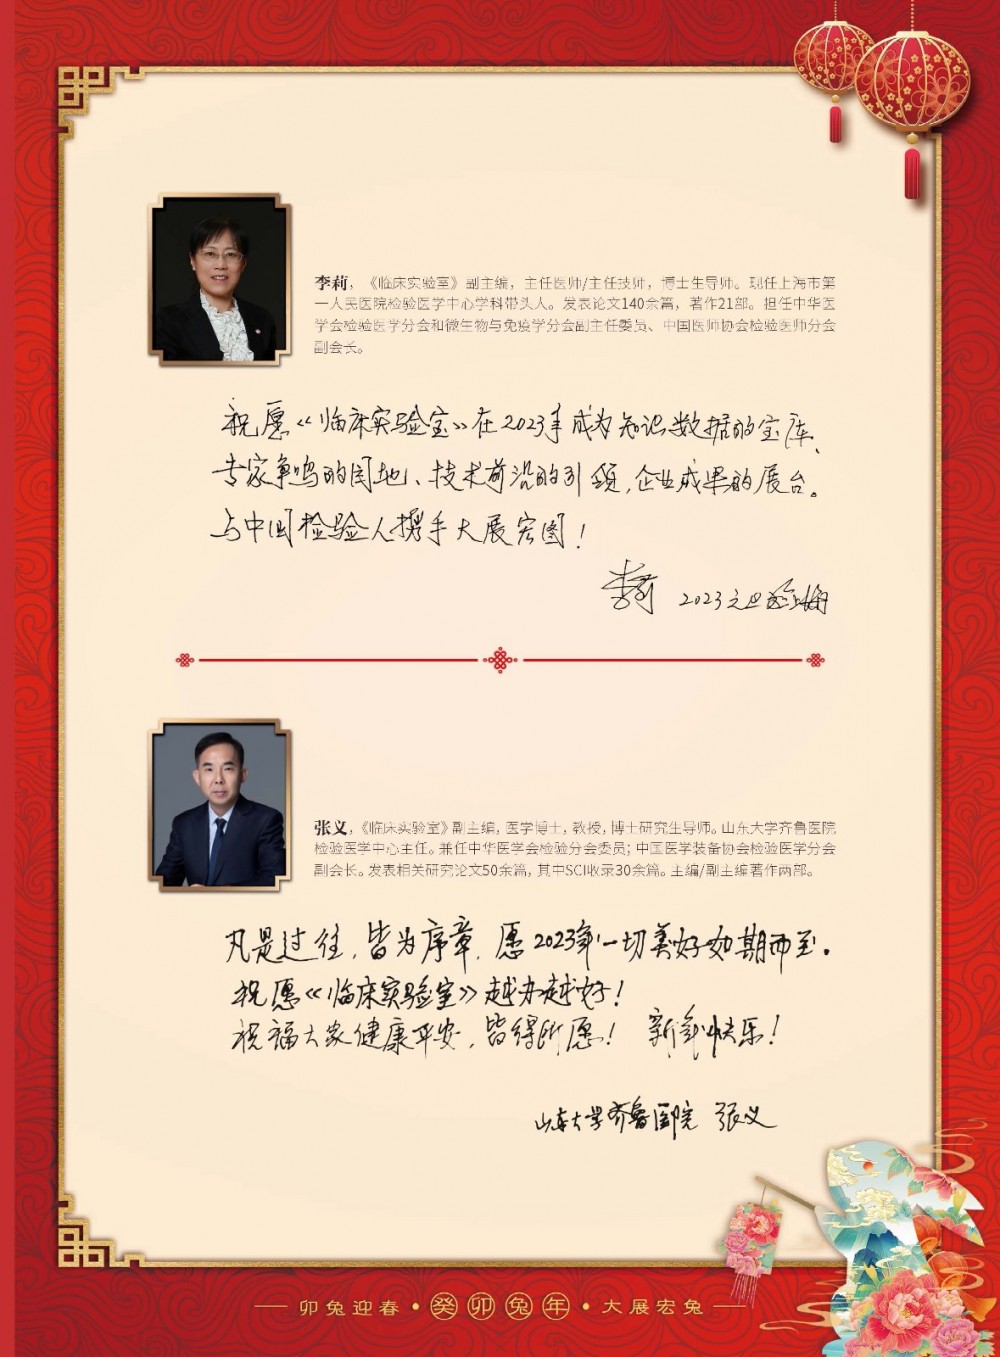 李莉，《临床实验室》副主编，主任医师/主任技师，博士生导师。现任上海市第
一人民医院检验医学中心学科带头人。发表论文140余篇，著作21部。担任中华医
学会检验医学分会和微生物与免疫学分会副主任委员、中国医师协会检验医师分会
副会长。
祝愿《临床实验室》在2023年成为知识数据的宝库、
专家争鸣的园地、技术前沿的引领，企业成果的展台。
与中国检验人携手大展宏图！
李莉 2023元旦 上海
张义，《临床实验室》副主编，医学博士，教授，博士研究生导师。山东大学齐鲁医院
检验医学中心主任。兼任中华医学会检验分会委员；中国医学装备协会检验医学分会
副会长。发表相关研究论文50余篇，其中SCI收录30余篇。主编/副主编著作两部。
凡是过往，皆为序章，愿2023年一切美好如期而至。
祝愿《临床实验室》越办越好！
祝福大家健康平安，皆得所愿！ 新年快乐！
山东大学齐鲁医院 张义
卯兔迎春·癸卯兔年·大展宏兔